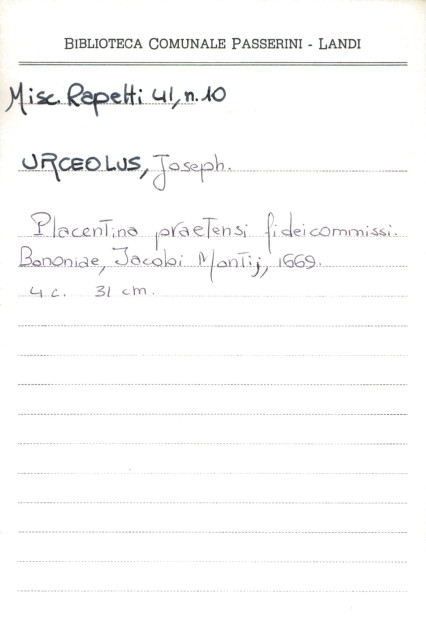 BIBLIOTECA COMUNALE PASSERINI - LANDI
Misc. Repetti 41, n. 10
URCEOLUS, Joseph.
Placentina praetensi fideicommissi.
Bononiae, Jacobi Montij, 1669.
4 c. 31 cm.